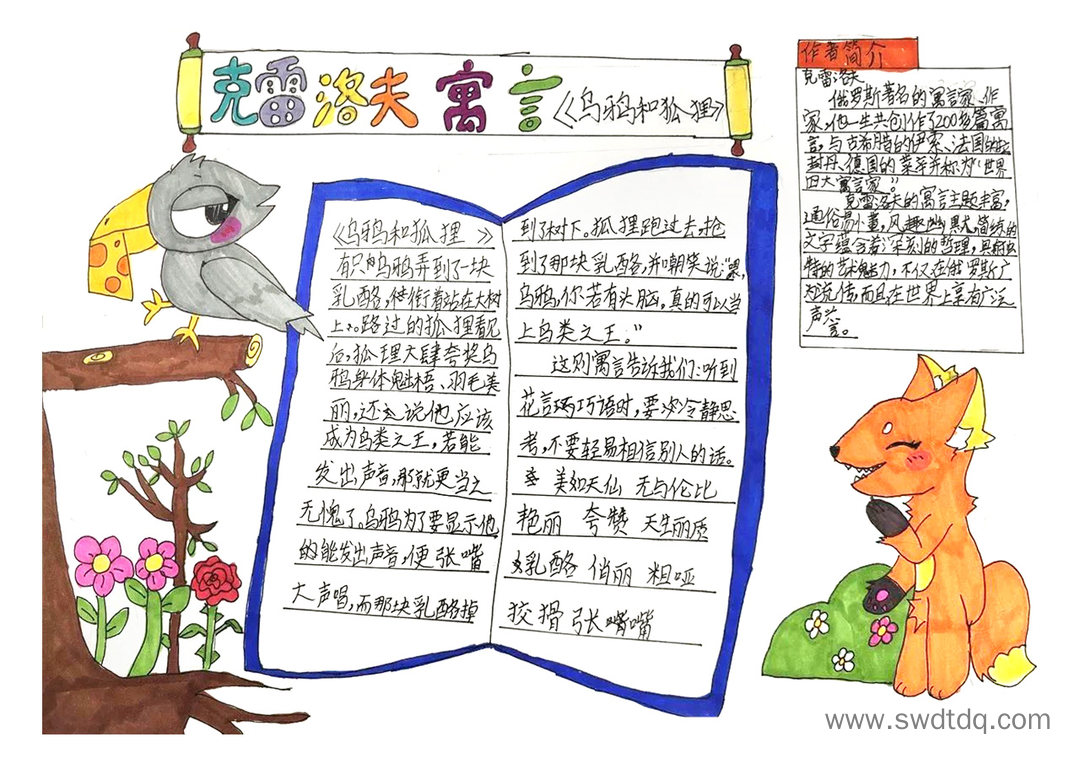 克雷洛夫 寓言《乌鸦和狐狸》
作者简介
克雷洛夫
俄罗斯著名的寓言家、作
家,他一生共创作了200多篇寓
言,与古希腊的伊索、法国的拉
封丹、德国的莱辛并称为“世界
四大寓言家”。
克雷洛夫的寓言主题丰富,
通俗易懂,风趣幽默,简练的
文字蕴含着深刻的哲理,具有独
特的艺术魅力,不仅在俄罗斯广
为流传,而且在世界上享有广泛
声誉。
《乌鸦和狐狸 》
有只乌鸦弄到了一块
乳酪,他衔着站在大树
上。路过的狐狸看见
后,狐狸大肆夸奖乌
鸦身体魁梧、羽毛美
丽,还说他应该
成为鸟类之王,若能
发出声音,那就更当之
无愧了。乌鸦为了要显示他
的能发出声音,便张嘴
大声唱,而那块乳酪掉
到了树下。狐狸跑过去,抢
到了那块乳酪,并嘲笑说:“嘿,
乌鸦,你若有头脑,真的可以当
上鸟类之王。”
这则寓言告诉我们:听到
花言巧语时,要冷静思
考,不要轻易相信别人的话。
美如天仙 无与伦比
艳丽 夸赞 天生丽质
乳酪 俏丽 粗哑
狡猾 张嘴
www.swdtdq.com